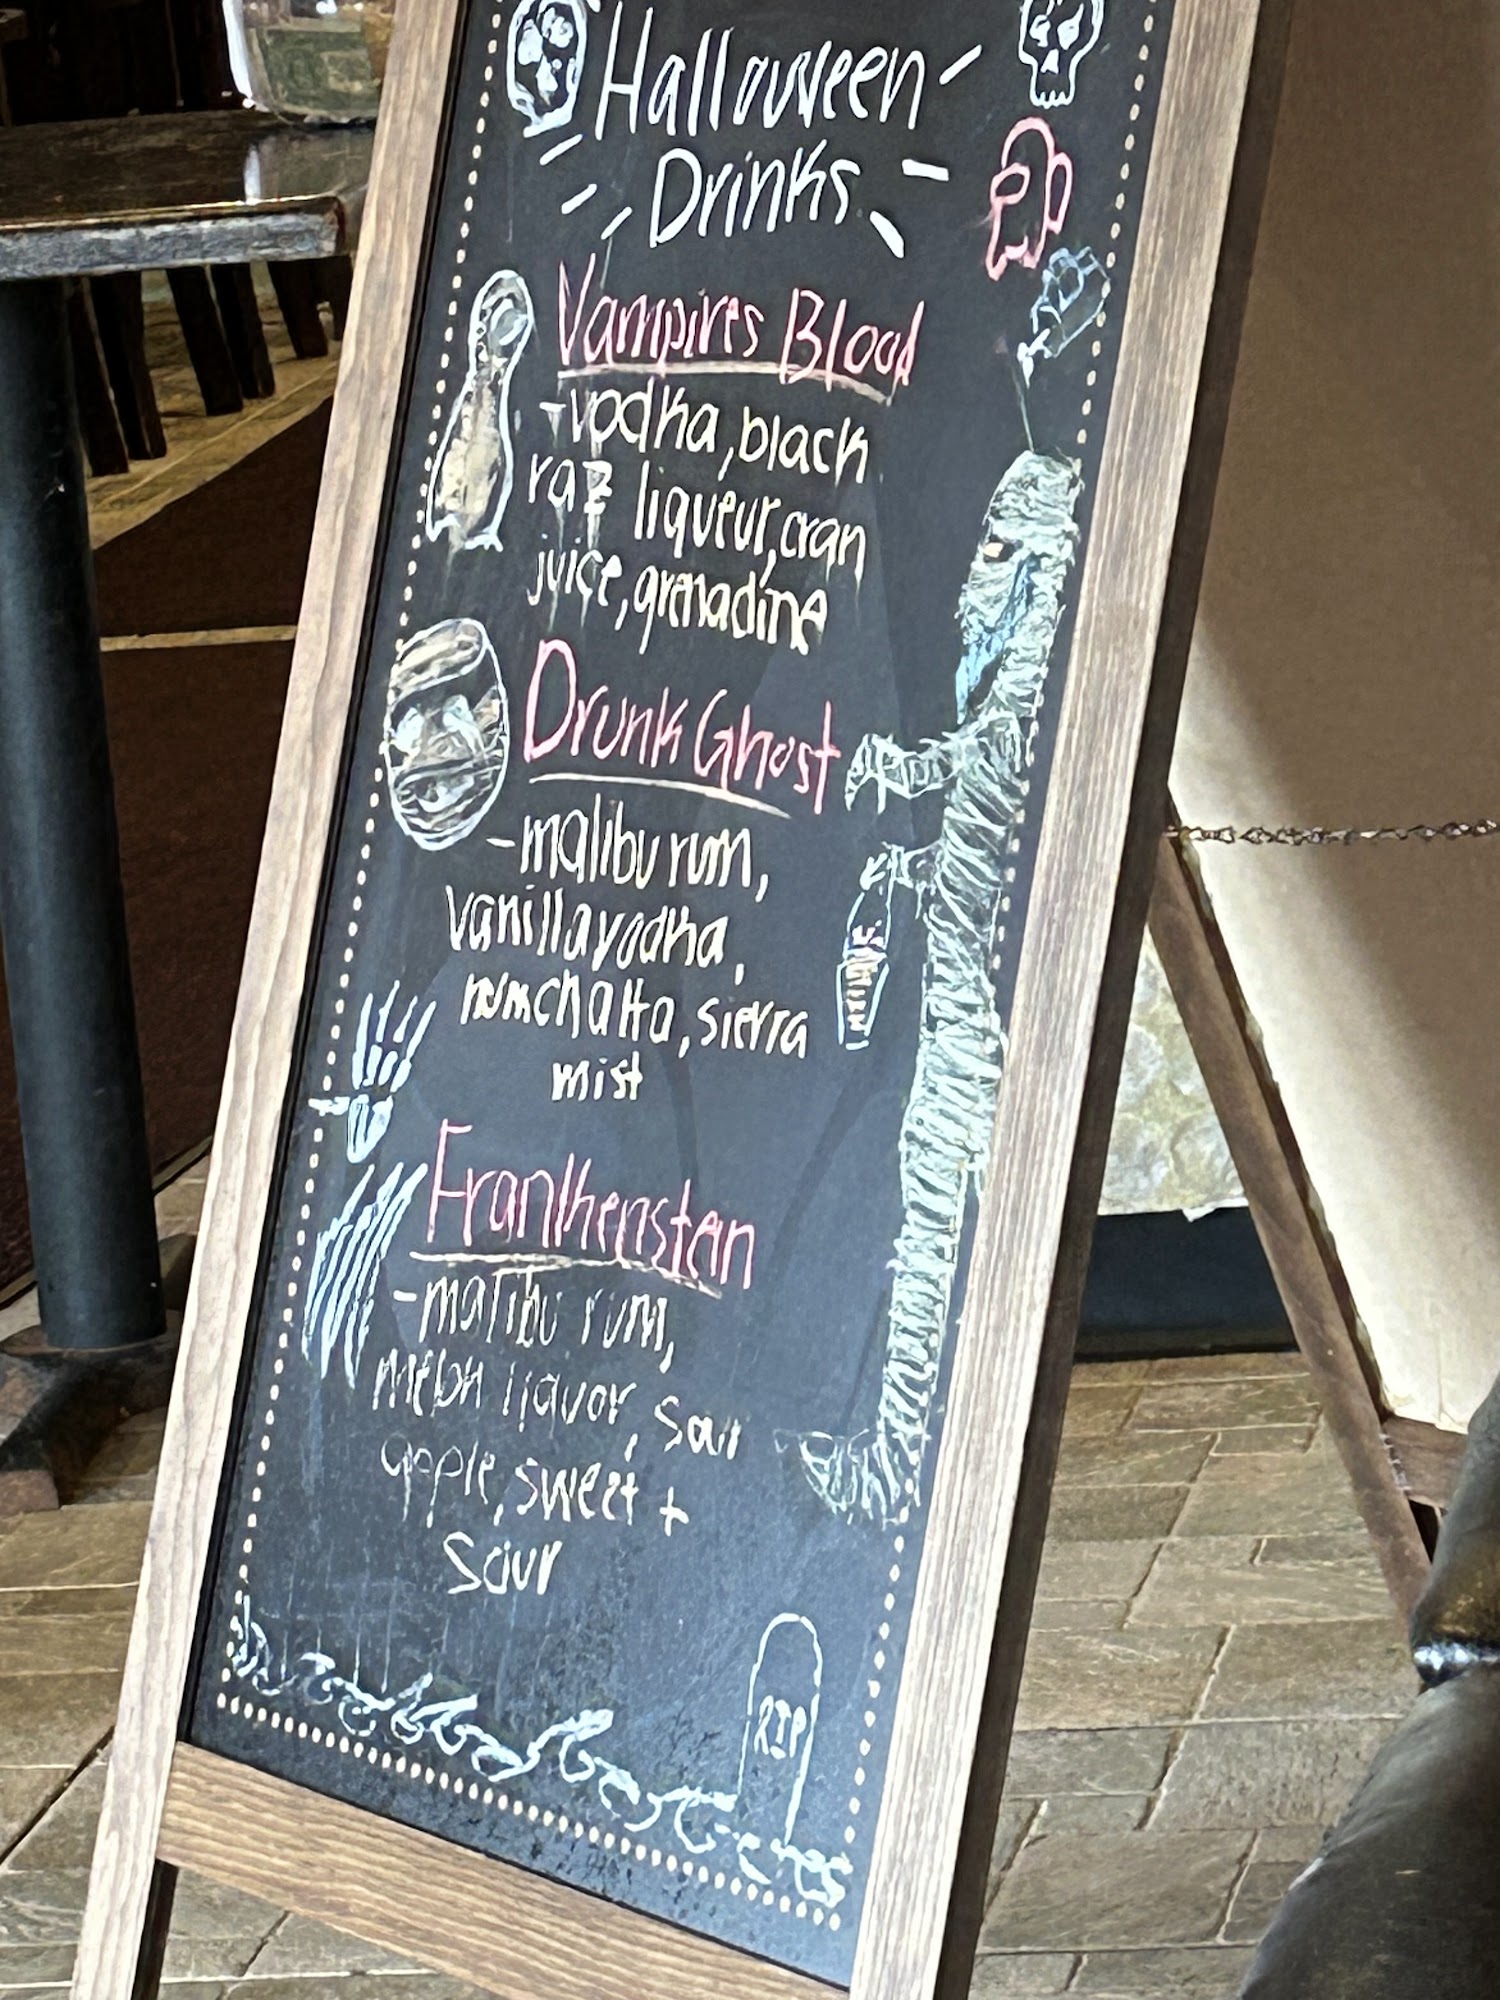 Halloween
Drinks
Vampires Blood
-vodka, black
raz liqueur, cran
juice, grenadine
Drunk Ghost
-malibu rum,
vanilla vodka,
rumchatta, sierra
mist
Frankenstein
-malibu rum,
melon liquor, sour
apple, sweet +
sour
RIP